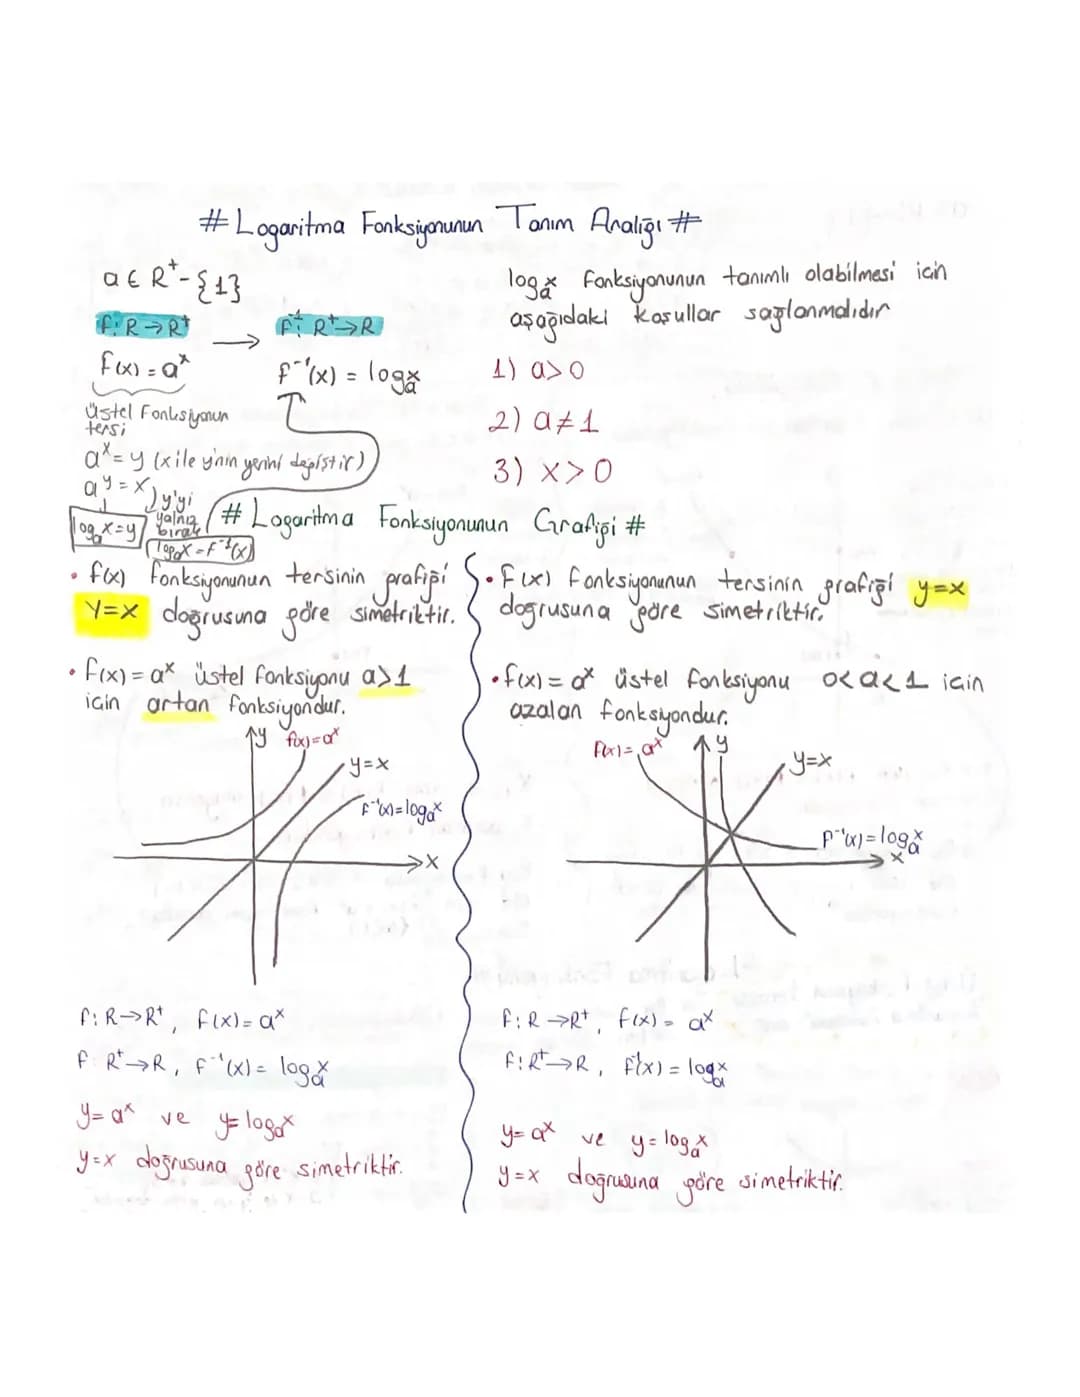 # Logaritma Fonksiyonunun Tanım Aralığı #
a ∈ R⁺-{1}
f: R→R⁺ → f⁻¹: R⁺→R
f(x) = aˣ
f⁻¹(x) = logₐx
Üstel Fonksiyonun
tersi
aˣ = y (x ile y'nin yerini değiştir)
aʸ = x
y'yi
yalnız
bırak
logₐx=y
logₐx = f⁻¹(x)
logₐx fonksiyonunun tanımlı olabilmesi için
aşağıdaki koşullar sağlanmalıdır
1) a>0
2) a≠1
3) x>0
# Logaritma Fonksiyonunun Grafiği #
• f(x) fonksiyonunun tersinin grafiği
y=x doğrusuna göre simetriktir.
• f(x) = aˣ üstel fonksiyonu a>1
için artan fonksiyondur.
y
f(x)=aˣ
y=x
f⁻¹(x)=logₐx
x
f: R→R⁺, f(x)= aˣ
f R⁺→R, f⁻¹(x) = logₐx
y= aˣ ve y= logₐx
y=x doğrusuna göre simetriktir.
• f(x) fonksiyonunun tersinin grafiği y=x
doğrusuna göre simetriktir.
• f(x) = aˣ üstel fonksiyonu 0<a<1 için
azalan fonksiyondur.
f(x)= aˣ
y
y=x
f⁻¹(x)=logₐx
x
f: R→R⁺, f(x) = aˣ
f: R⁺→R, f⁻¹(x) = logₐx
y= aˣ ve y= logₐx
y=x doğrusuna göre simetriktir.